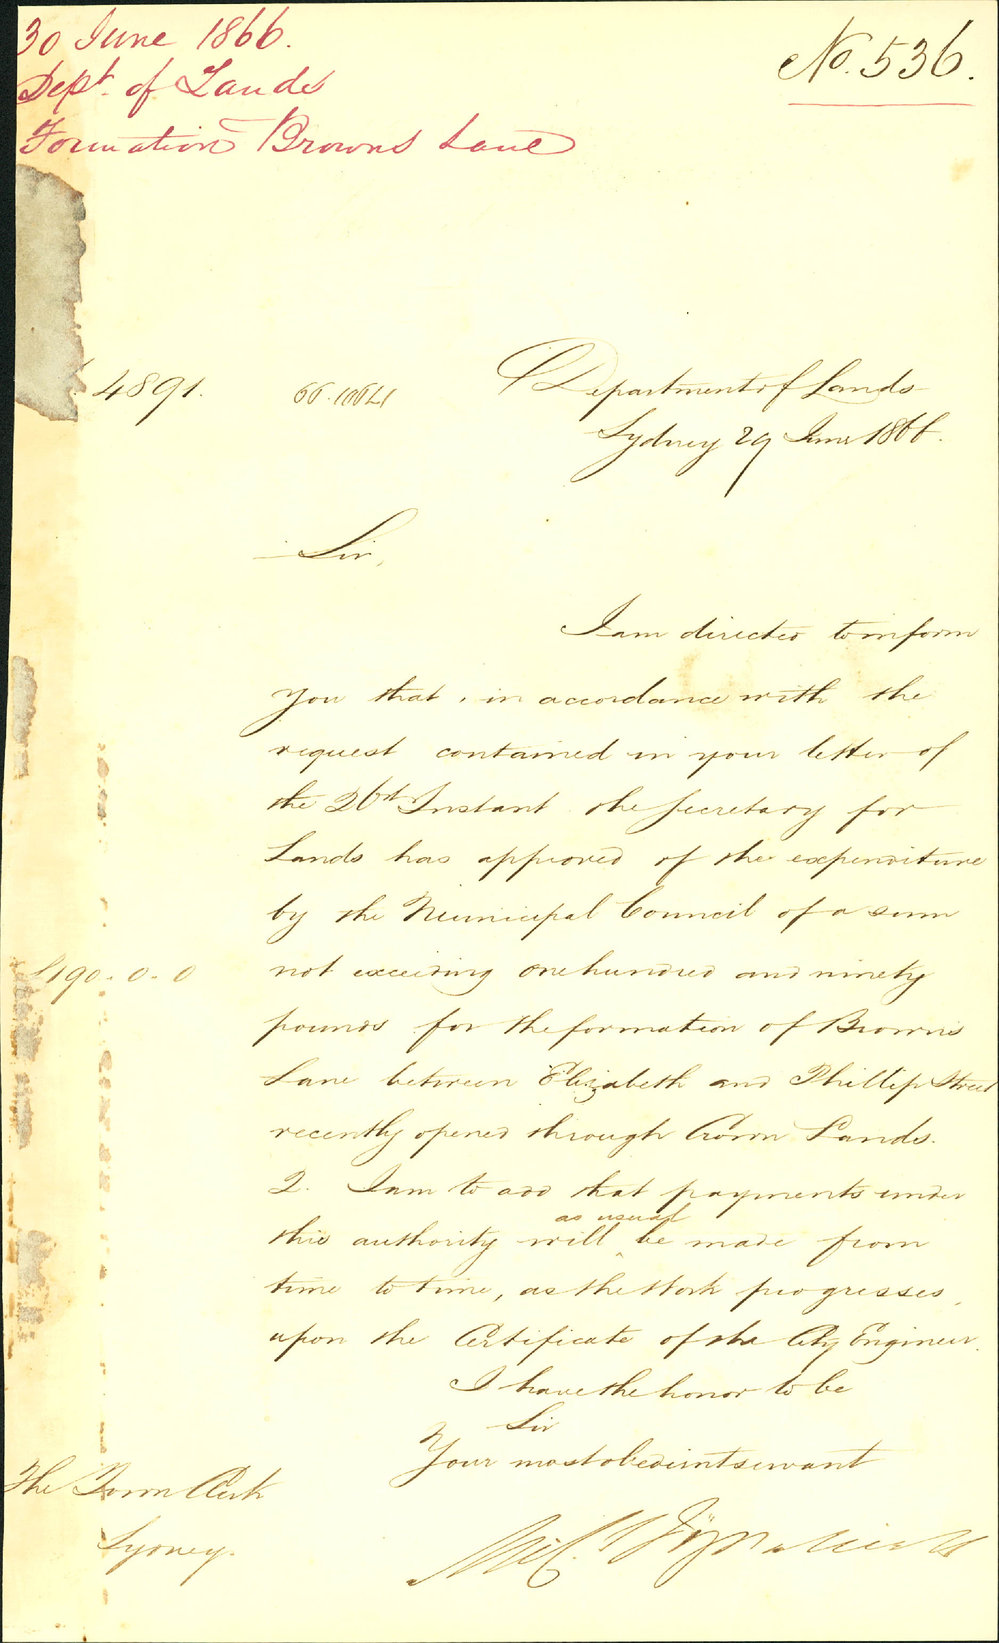 30 June 1866.
No. 536.
Dept. of Lands
Formation Browns Lane
4891.
Department of Lands
Sydney 29 June 1866.
Sir,
I am directed to inform
you that, in accordance with the
request contained in your letter of
the 26th Instant the Secretary for
Lands has approved of the expenditure
by the Municipal Council of a sum
£190.0.0
not exceeding one hundred and ninety
pounds for the formation of Browns
Lane between Elizabeth and Phillip Street
recently opened through Crown Lands.
2. I am to add that payments under
as usual
this authority will be made from
time to time, as the Work progresses,
upon the Certificate of the City Engineer.
I have the honor to be
Sir
Your most obedient servant
The Town Clerk
Sydney.
Micl. Fitzpatrick